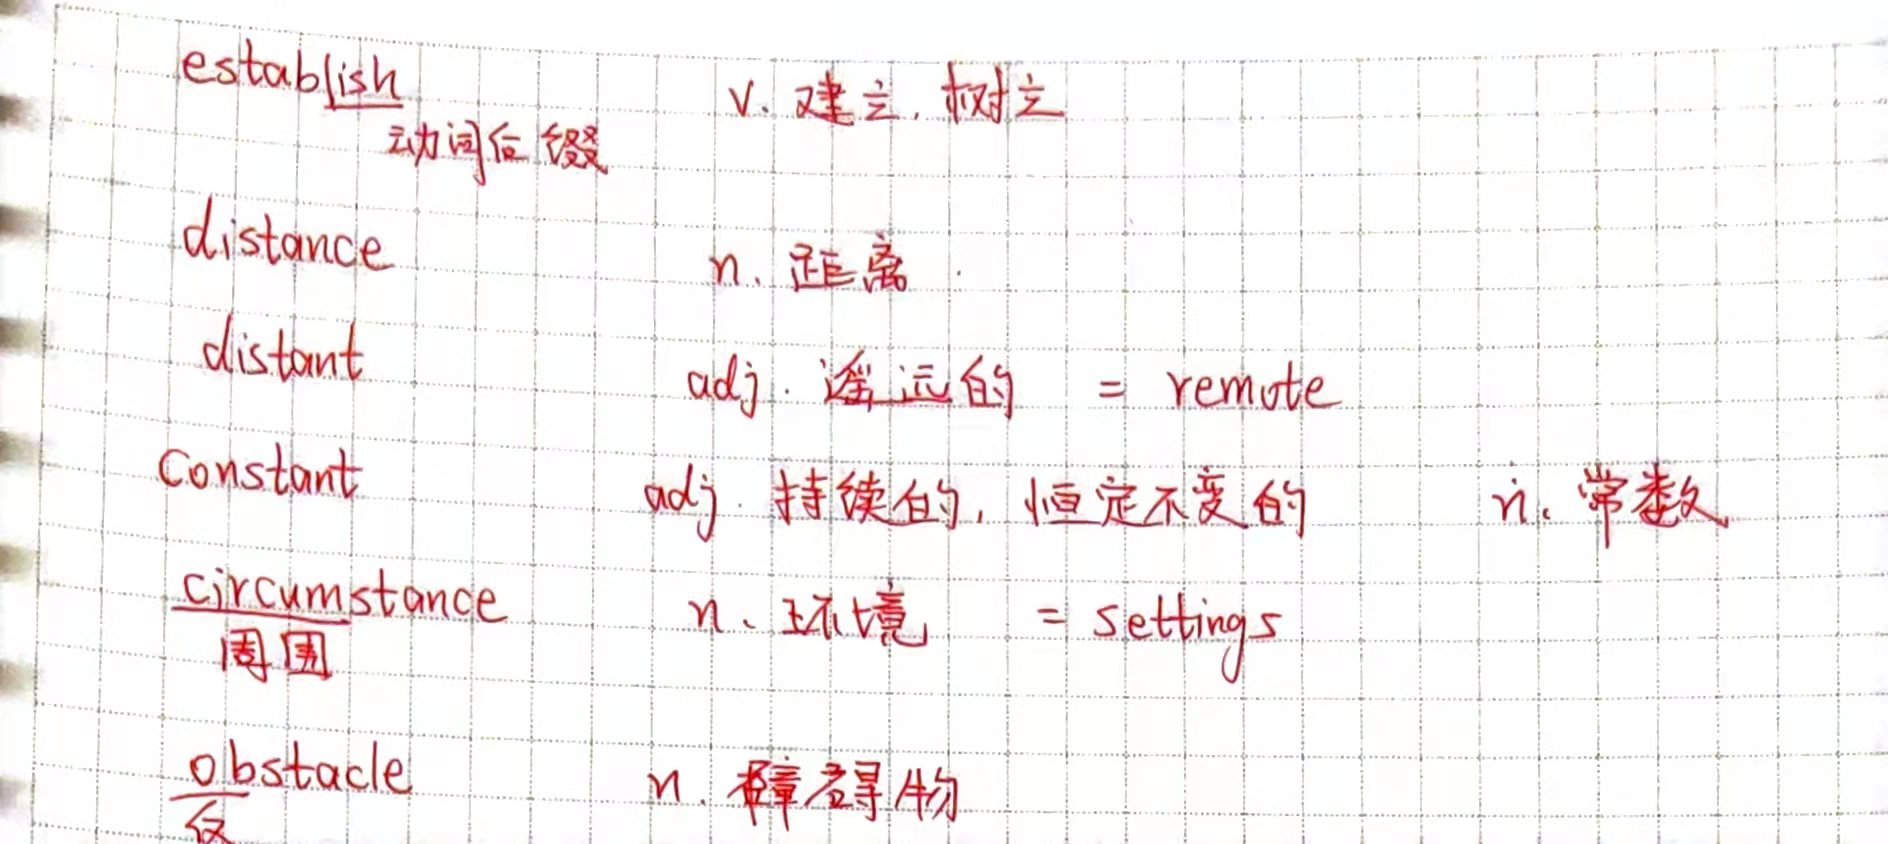 establish v. 建立, 树立
动词后缀
distance n. 距离
distant adj. 遥远的 = remote
constant adj. 持续的, 恒定不变的 n. 常数
circumstance n. 环境 = settings
周围
obstacle n. 障碍物
反